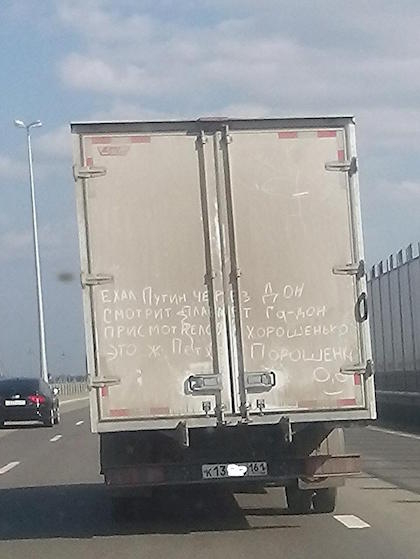 ЕХАЛ ПУТИН ЧЕРЕЗ ДОН
СМОТРИТ ПЛАВАЕТ ГА-ДОН
ПРИСМОТРЕЛСЯ ХОРОШЕНЬКО
ЭТО Ж ПЕТЯ ПОРОШЕНКО
0,0
К13 161